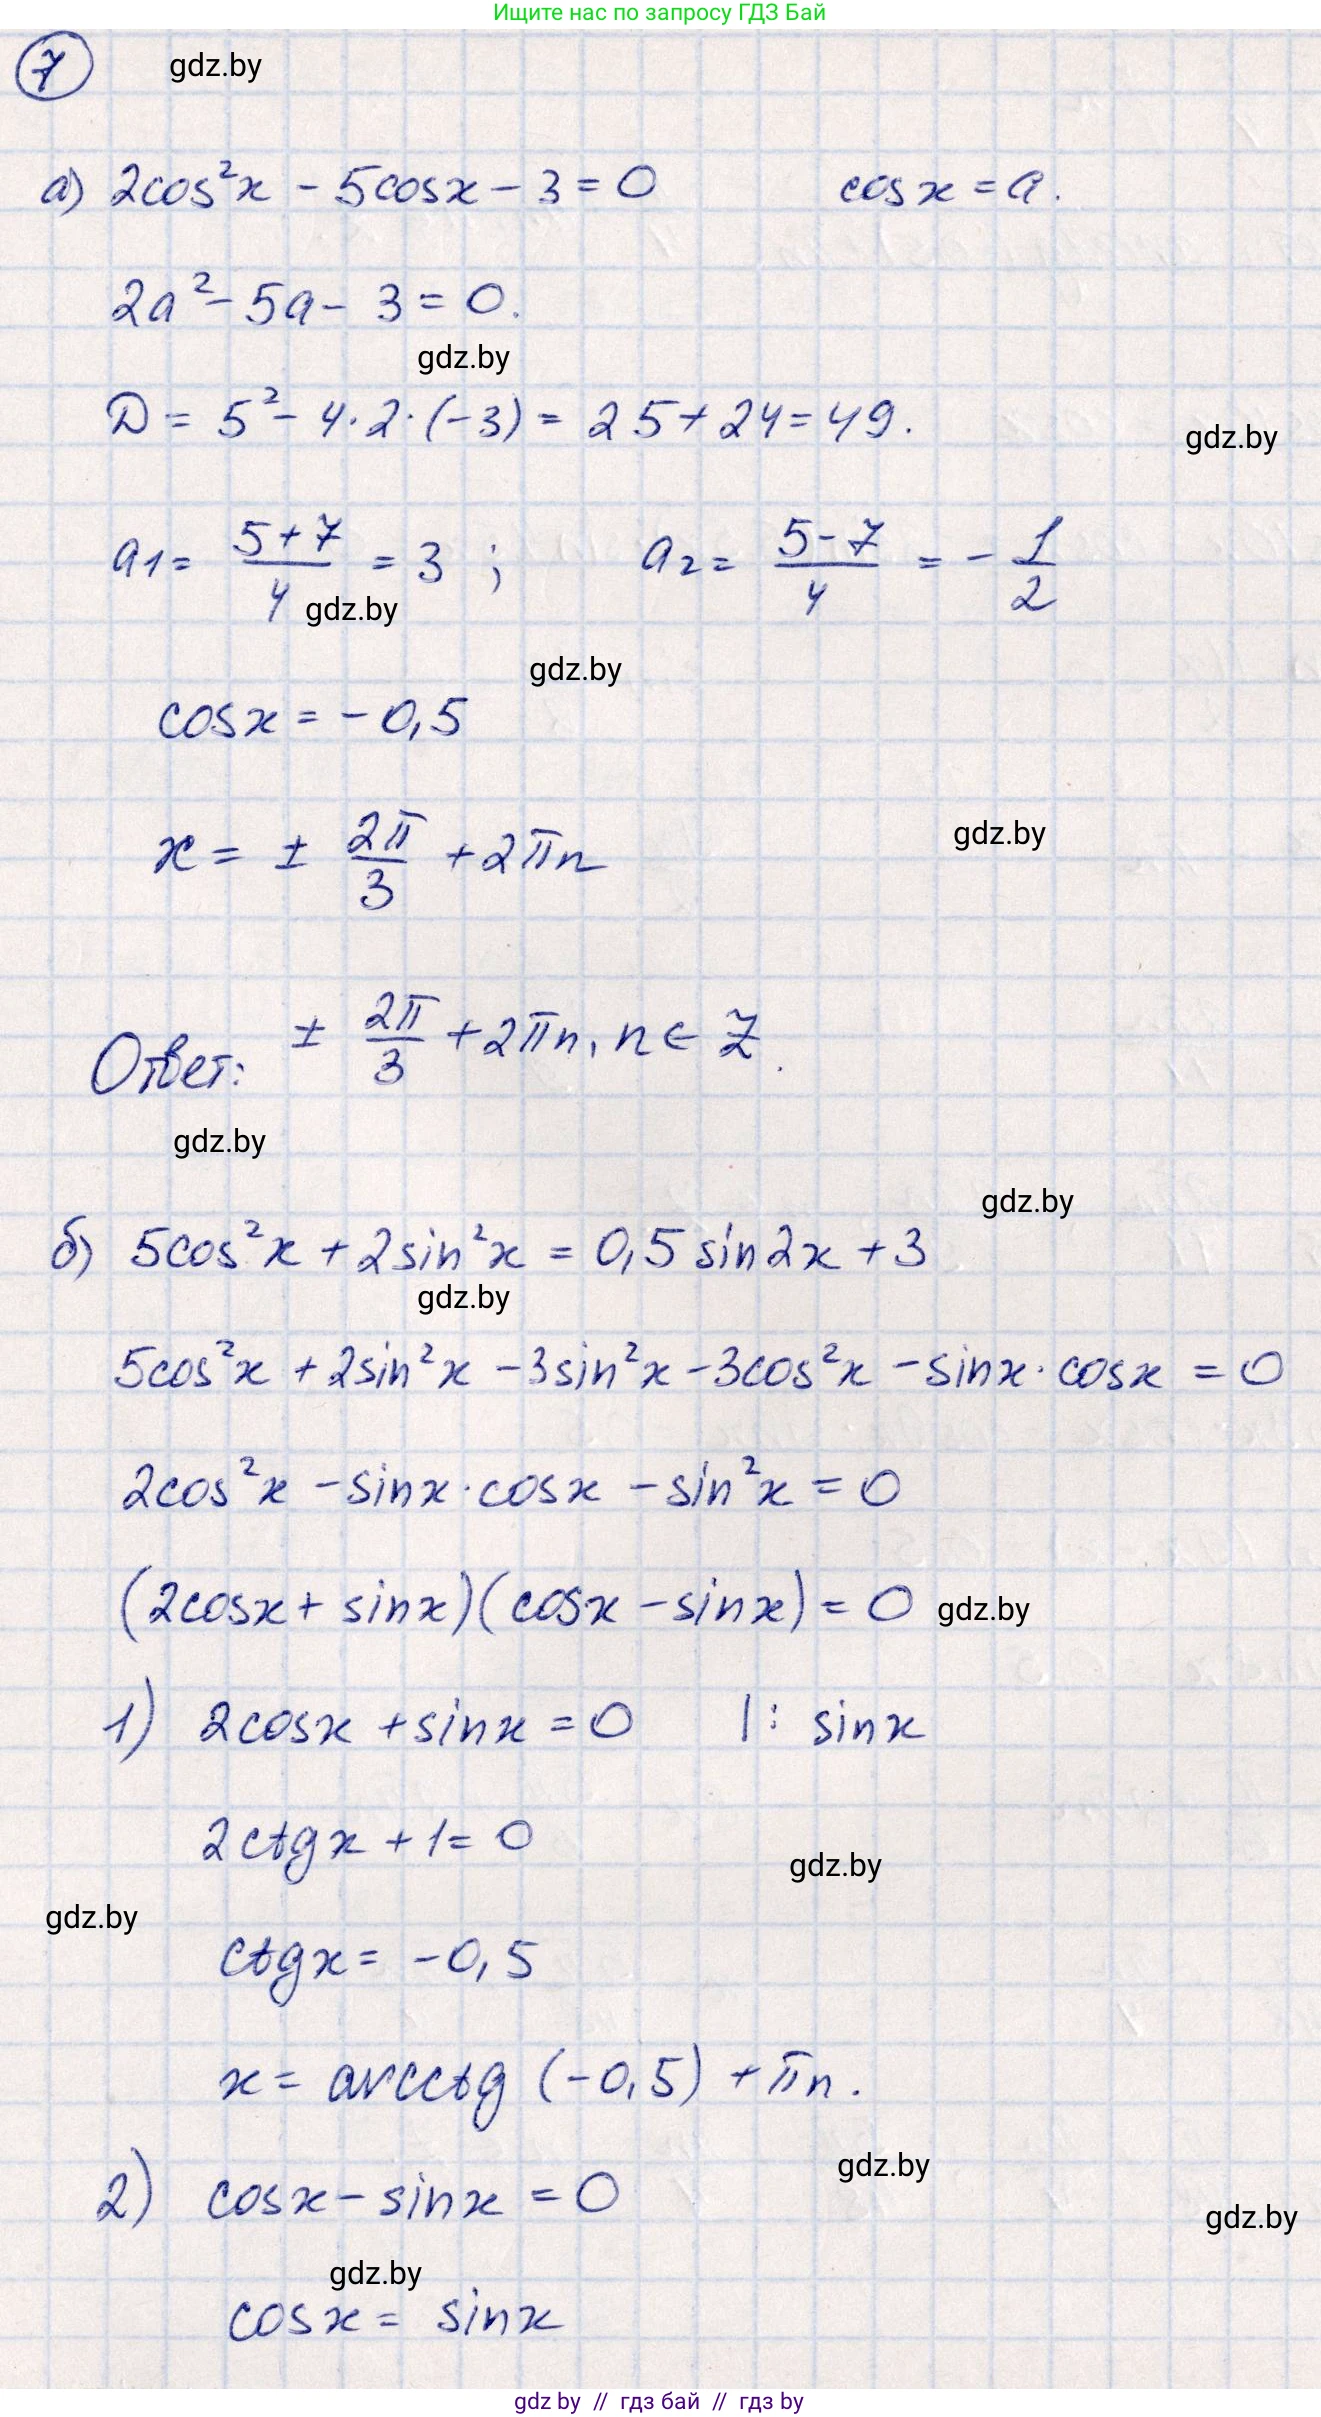 Ищите нас по запросу ГДЗ Бай
7 gdz.by
а) 2cos²x - 5cosx - 3 = 0 cosx = a.
2a² - 5a - 3 = 0.
gdz.by
D = 5² - 4·2·(-3) = 25 + 24 = 49.
gdz.by
a1 = (5+7)/4 = 3 ; a2 = (5-7)/4 = -1/2
gdz.by
gdz.by
cosx = -0,5
x = ± 2π/3 + 2πn
gdz.by
Ответ: ± 2π/3 + 2πn, n ∈ Z.
gdz.by
gdz.by
б) 5cos²x + 2sin²x = 0,5 sin2x + 3
gdz.by
5cos²x + 2sin²x - 3sin²x - 3cos²x - sinx·cosx = 0
2cos²x - sinx·cosx - sin²x = 0
(2cosx + sinx)(cosx - sinx) = 0 gdz.by
1) 2cosx + sinx = 0 |: sinx
2ctgx + 1 = 0
gdz.by
gdz.by
ctgx = -0,5
x = arcctg (-0,5) + πn.
gdz.by
2) cosx - sinx = 0
gdz.by
gdz.by
cosx = sinx
gdz by // гдз бай // гдз by